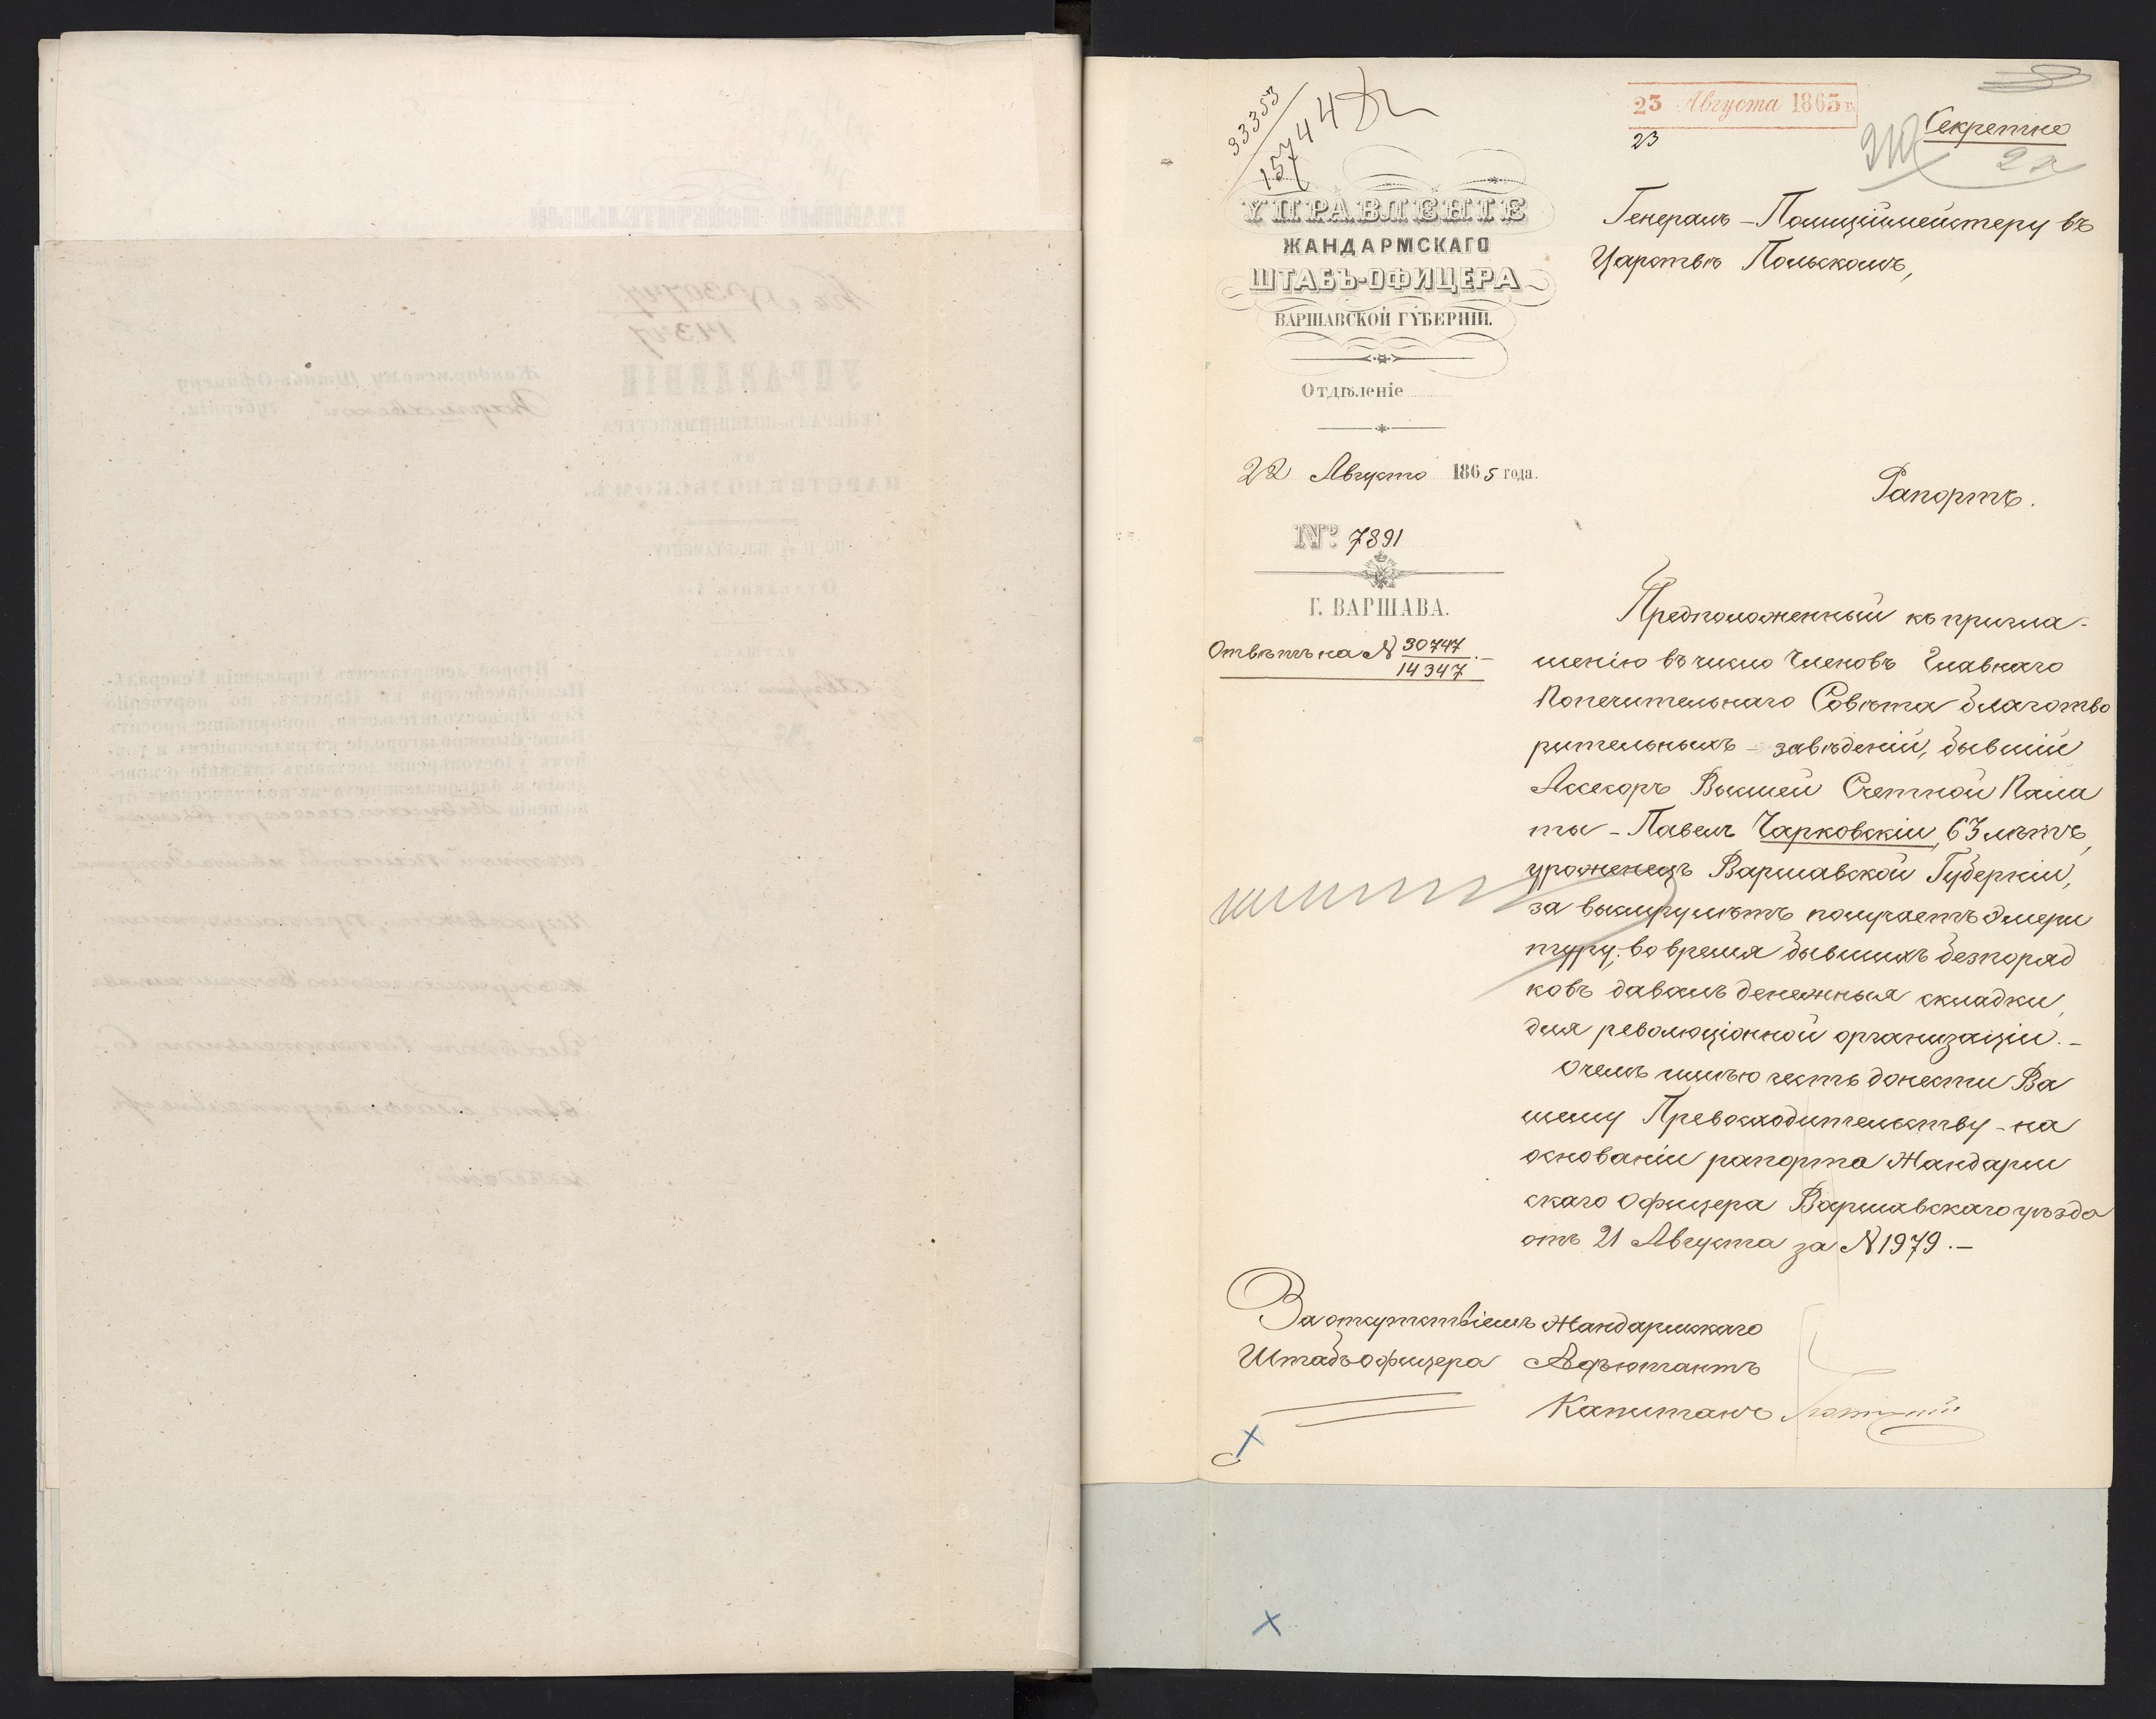 33353
15744
23 Августа 1865 г.
23
Секретно
УПРАВЛЕНІЕ
ЖАНДАРМСКАГО
ШТАБЪ-ОФИЦЕРА
ВАРШАВСКОЙ ГУБЕРНІИ.
Отдѣленіе
22 Августа 1865 года.
№ 7891
Г. ВАРШАВА.
Отвѣтъ на № 30747
14347
Генералъ-Полиціймейстеру въ
Царствѣ Польскомъ,
Рапортъ.
Предположенный къ пригла-
шенію въ число Членовъ Главнаго
Попечительнаго Совѣта благотво
рительныхъ-завѣденій, бывшій
Ассесоръ Высшей Счетной Пала
ты - Павелъ Чарковскій, 63 лѣтъ,
уроженецъ Варшавской Губерніи,
за выслугу лѣтъ получаетъ эмери
туру; во время бывшихъ безпоряд
ковъ давалъ денежныя складки,
для революціонной организаціи.-
О чемъ имѣю честь донести Ва
шему Превосходительству - на
основаніи рапорта Жандарм
скаго Офицера Варшавскаго уѣзда
отъ 21 Августа за № 1979.-
За отсутствіемъ Жандармскаго
Штабъ Офицера Адъютантъ
Капитанъ